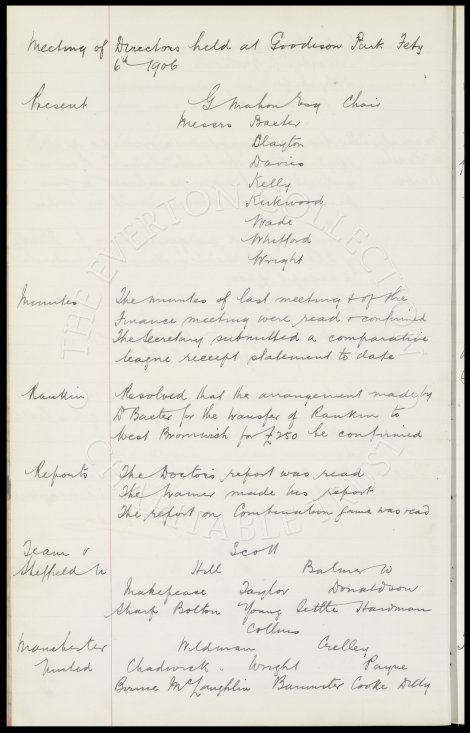 Meeting of Directors held at Goodison Park Feby
6th 1906
Present G Mahon Esq Chair
Messrs Baxter
Clayton
Davies
Kelly
Kirkwood
Wade
Whitford
Wright
Minutes The minutes of last meeting & of the
Finance meeting were read & confirmed
The Secretary submitted a comparative
league receipt statement to date
Rankin Resolved that the arrangement made by
Dr Baxter for the transfer of Rankin to
West Bromwich for £250 be confirmed
Reports The Doctors report was read
The Trainer made his report
The report on Combination game was read
Team v Scott
Sheffield U Hill Balmer W
Makepeace Taylor Donaldson
Sharp Bolton Young Settle Hardman
Collins
Manchester Wildman Crelley
United Chadwick Wright Payne
Birnie McLoughlin Bannister Cooke Dilly
THE EVERTON COLLECTION
CHARITABLE TRUST